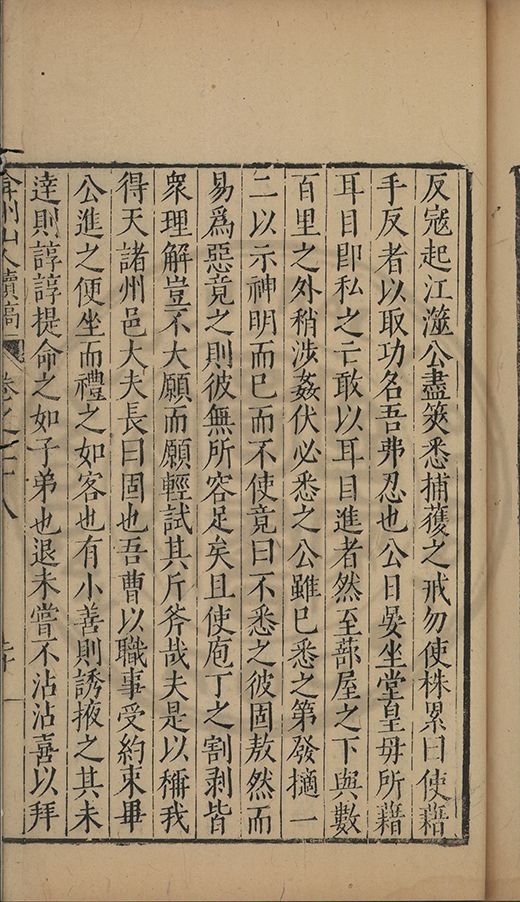 反寇起江澨公盡筴悉捕蒦之戒勿使株累曰使藉
手反者以取功名吾弗忍也公日晏坐堂皇毋所藉
耳目卽私之亡敢以耳目進者然至蔀屋之下與數
百里之外稍涉姦伏必悉之公雖已悉之第發擿一
二以示神明而已而不使竟曰不悉之彼固敖然而
易爲惡竟之則彼無所容足矣且使庖丁之割剥皆
衆理解豈不大願而願輕試其斤斧哉夫是以稱我
得天諸州邑大夫長曰固也吾曹以職事受約束畢
公進之便坐而禮之如客也有小善則誘掖之其未
達則諄諄提命之如子弟也退未嘗不沾沾喜以拜
弇州山人續稿 卷之二十八